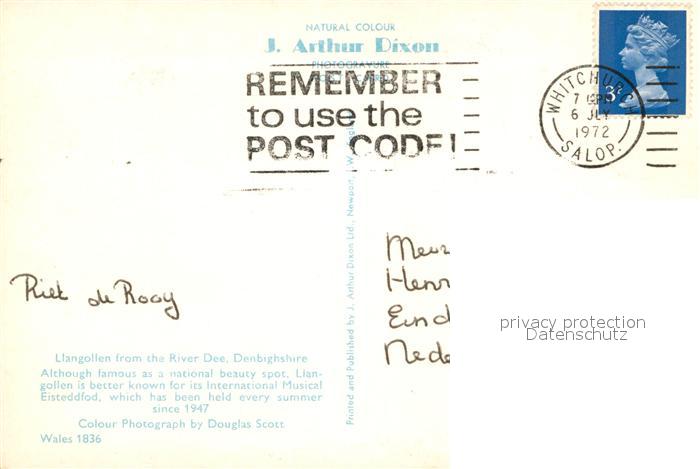 NATURAL COLOUR
J. Arthur Dixon
PHOTOGRAVURE
REMEMBER
to use the
POST CODE!
3P
WHITCHURCH
6 JLY
1972
SALOP.
Riet de Rooy
Printed and Published by J. Arthur Dixon Ltd., Newport,
privacy protection
Datenschutz
Llangollen from the River Dee, Denbighshire
Although famous as a national beauty spot, Llan-
gollen is better known for its International Musical
Eisteddfod, which has been held every summer
since 1947
Colour Photograph by Douglas Scott
Wales 1836